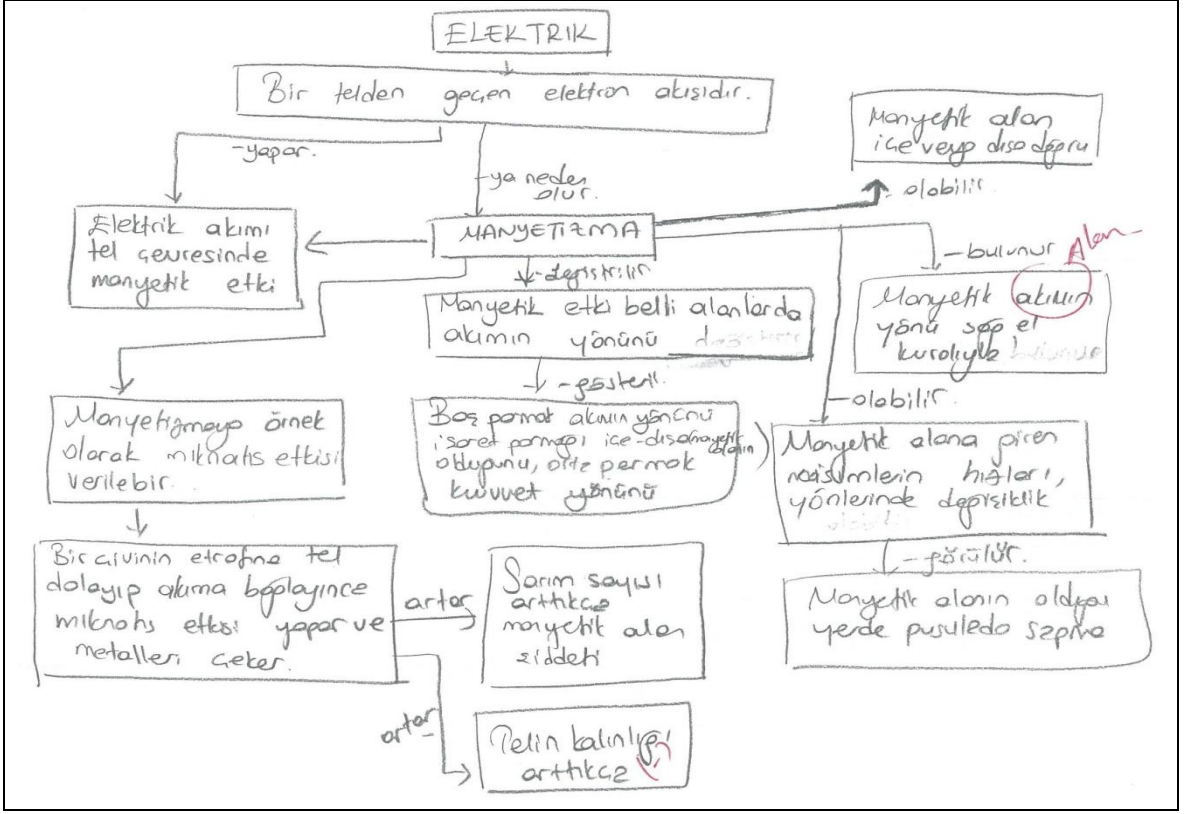 ELEKTRIK
Bir telden geçen elektron akışıdır.
-yapar.
-ya neden
olur.
Manyetik alan
içe veya dışa doğru
- olabilir.
Elektrik akımı
tel çevresinde
manyetik etki
MANYETİZMA
- değiştirilir
- bulunur
Alan
Manyetik akımın
yönü sağ el
kuralıyla bulunur
Manyetik etki belli alanlarda
akımın yönünü
- gösterir.
- olabilir.
Manyetizmaya örnek
olarak mıknatıs etkisi
verilebir.
Baş parmak akımın yönünü
işaret parmağı içe-dışa manyetik
alanın
olduğunu, orta parmak
kuvvet yönünü
Manyetik alana giren
hızları,
yönlerinde değişiklik
- görülür.
Bir çivinin etrafına tel
dolayıp akıma bağlayınca
mıknatıs etkisi yapar ve
metalleri çeker.
artar
Sarım sayısı
arttıkça
manyetik alan
şiddeti
Manyetik alanın olduğu
yerde pusulada sapma
artar
Telin kalınlığı
arttıkça